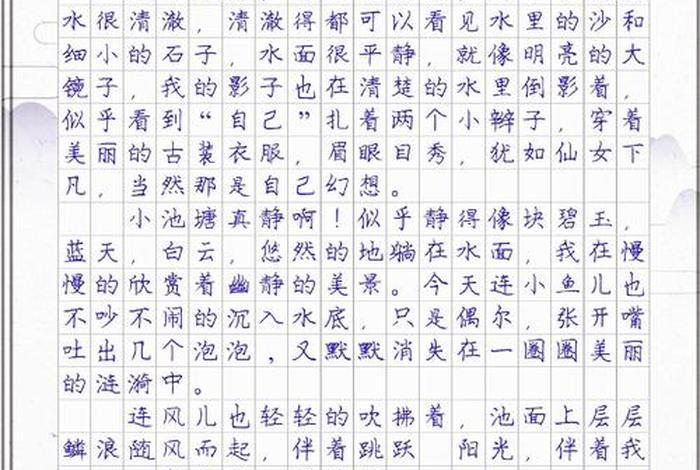 水很清澈，清澈得都可以看见水里的沙和
细小的石子，水面很平静，就像明亮的大
镜子，我的影子也在清楚的水里倒影着，
似乎看到“自己”扎着两个小辫子，穿着
美丽的古装衣服，眉眼目秀，犹如仙女下
凡，当然那是自己幻想。
小池塘真静啊！似乎静得像块碧玉，
蓝天，白云，悠然的地躺在水面，我在慢
慢的欣赏着幽静的美景。今天连小鱼儿也
不吵不闹的沉入水底，只是偶尔，张开嘴
吐出几个泡泡，又默默消失在一圈圈美丽
的涟漪中。
连风儿也轻轻的吹拂着，池面上层层
鳞浪随风而起，伴着跳跃 阳光，伴着我